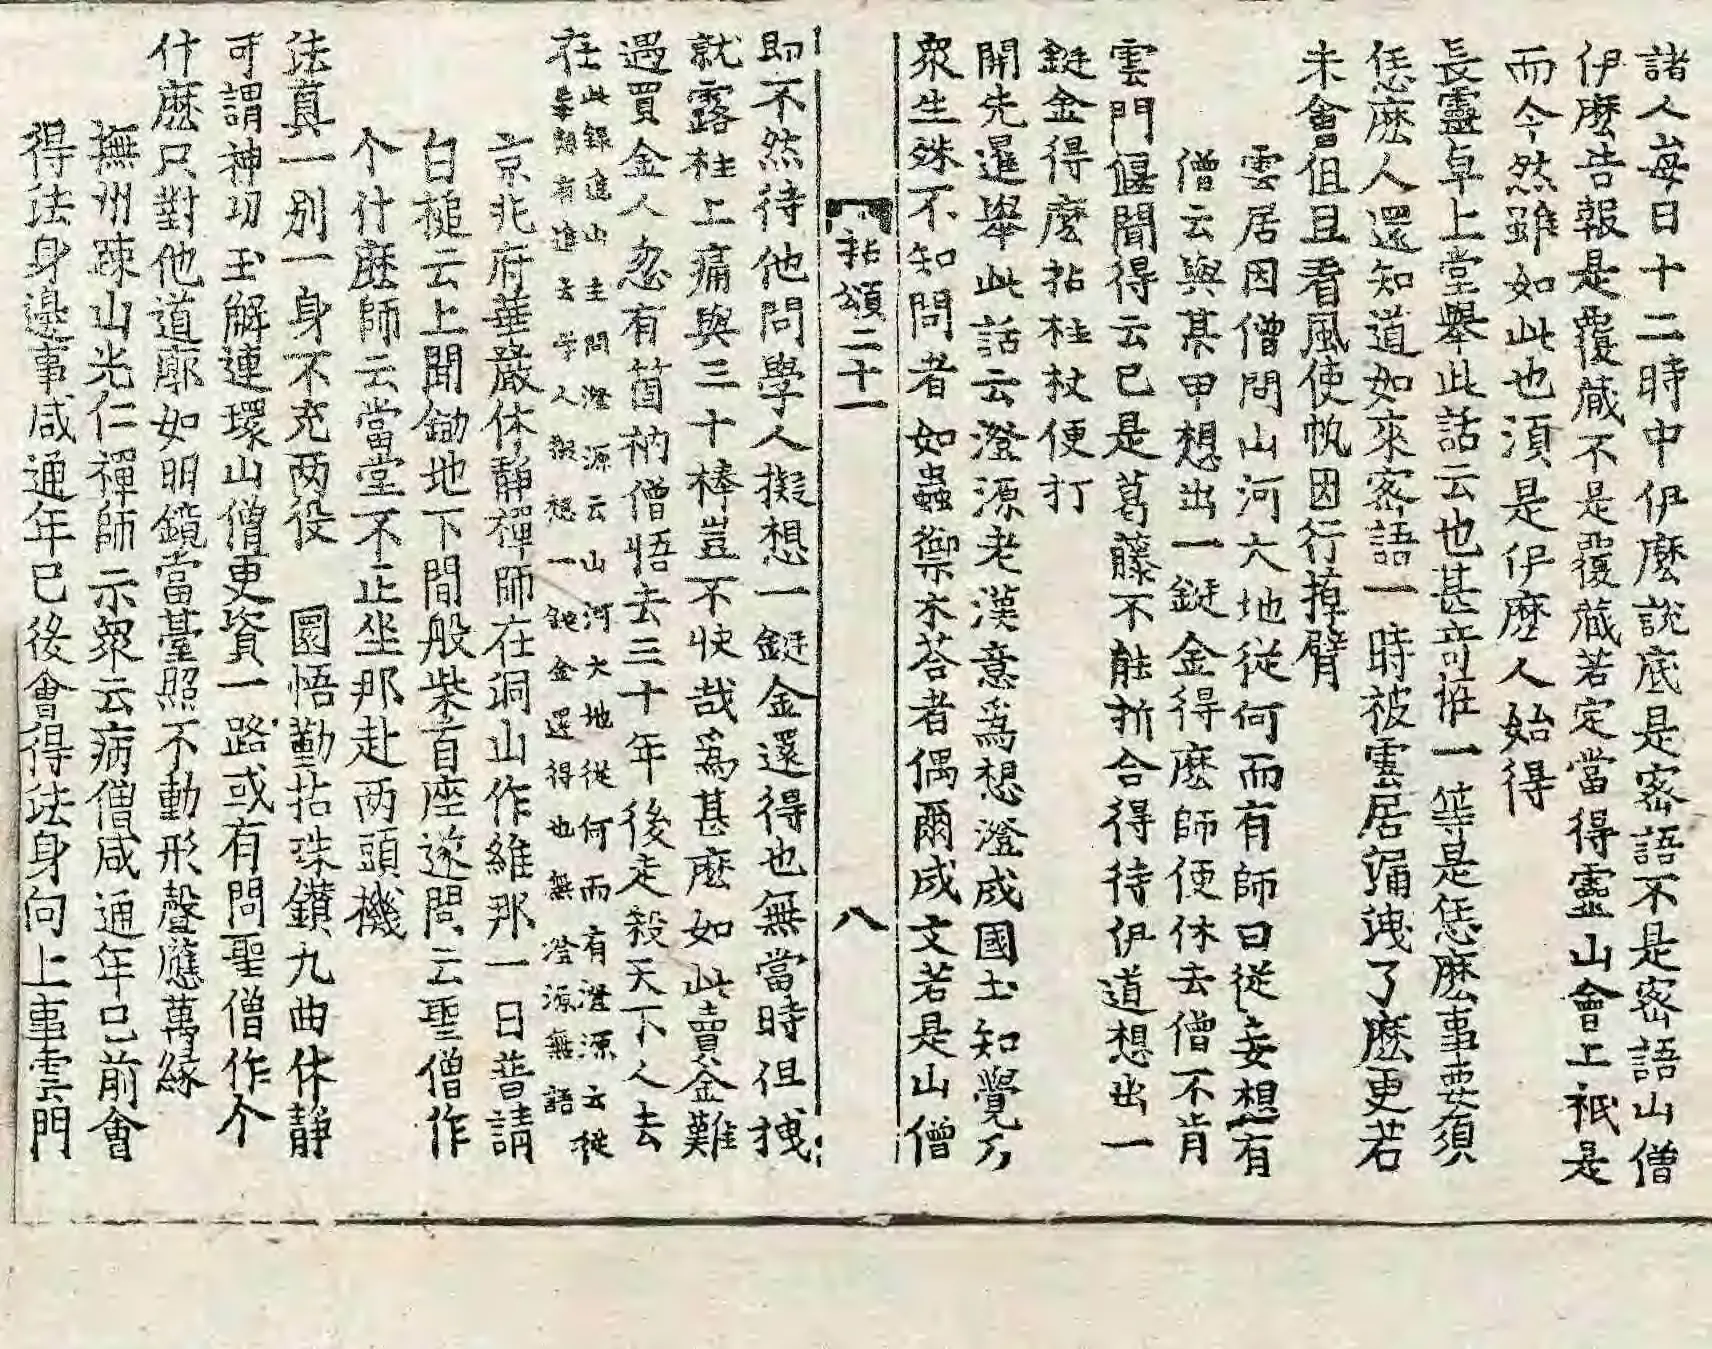 諸人每日十二時中伊麽說底是密語不是密語山僧
伊麽告報是覆蔵不是覆蔵若定當得靈山會上祇是
而今然雖如此也湏是伊麽人始得
長靈卓上堂舉此話云也甚竒恠一等是恁麽事要須
恁麽人還知道如來密語一時被雲居漏洩了麽更若
未會伹且看風使帆因行掉臂
雲居因僧問山河大地從何而有師曰從妄想有
僧云與某甲想出一鋌金得麽師便休去僧不肯
雲門偃聞得云已是葛藤不能折合得待伊道想出一
鋌金得麽拈柱杖便打
開先暹舉此話云澄源老漢意爲想澄成國土知覺乃
衆生殊不知問者如蟲禦木荅者偶爾成文若是山僧
拈頌二十一 八
即不然待他問學人擬想一鋌金還得也無當時但拽
就露柱上痛與三十棒豈不快哉爲甚麽如此賣金難
遇買金人忽有箇衲僧悟去三十年後走殺天下人去
在此録進山主問澄源云山河大地從何而有澄源云從
妄想有進云学人擬想一鋌金還得也無澄源無語
京兆府華嚴休靜禪師在洞山作維那一日普請
白槌云上間鋤地下間般柴首座遂問云聖僧作
个什麽師云當堂不正坐那赴两頭機
法真一別一身不充两役 圜悟勤拈珠鑽九曲休靜
可謂神功玉解連環山僧更資一路或有問聖僧作个
什麽只對他道廓如明鏡當臺照不動形聲應萬緣
撫州踈山光仁禪師示衆云病僧咸通年已前會
得法身邊事咸通年已後會得法身向上事雲門